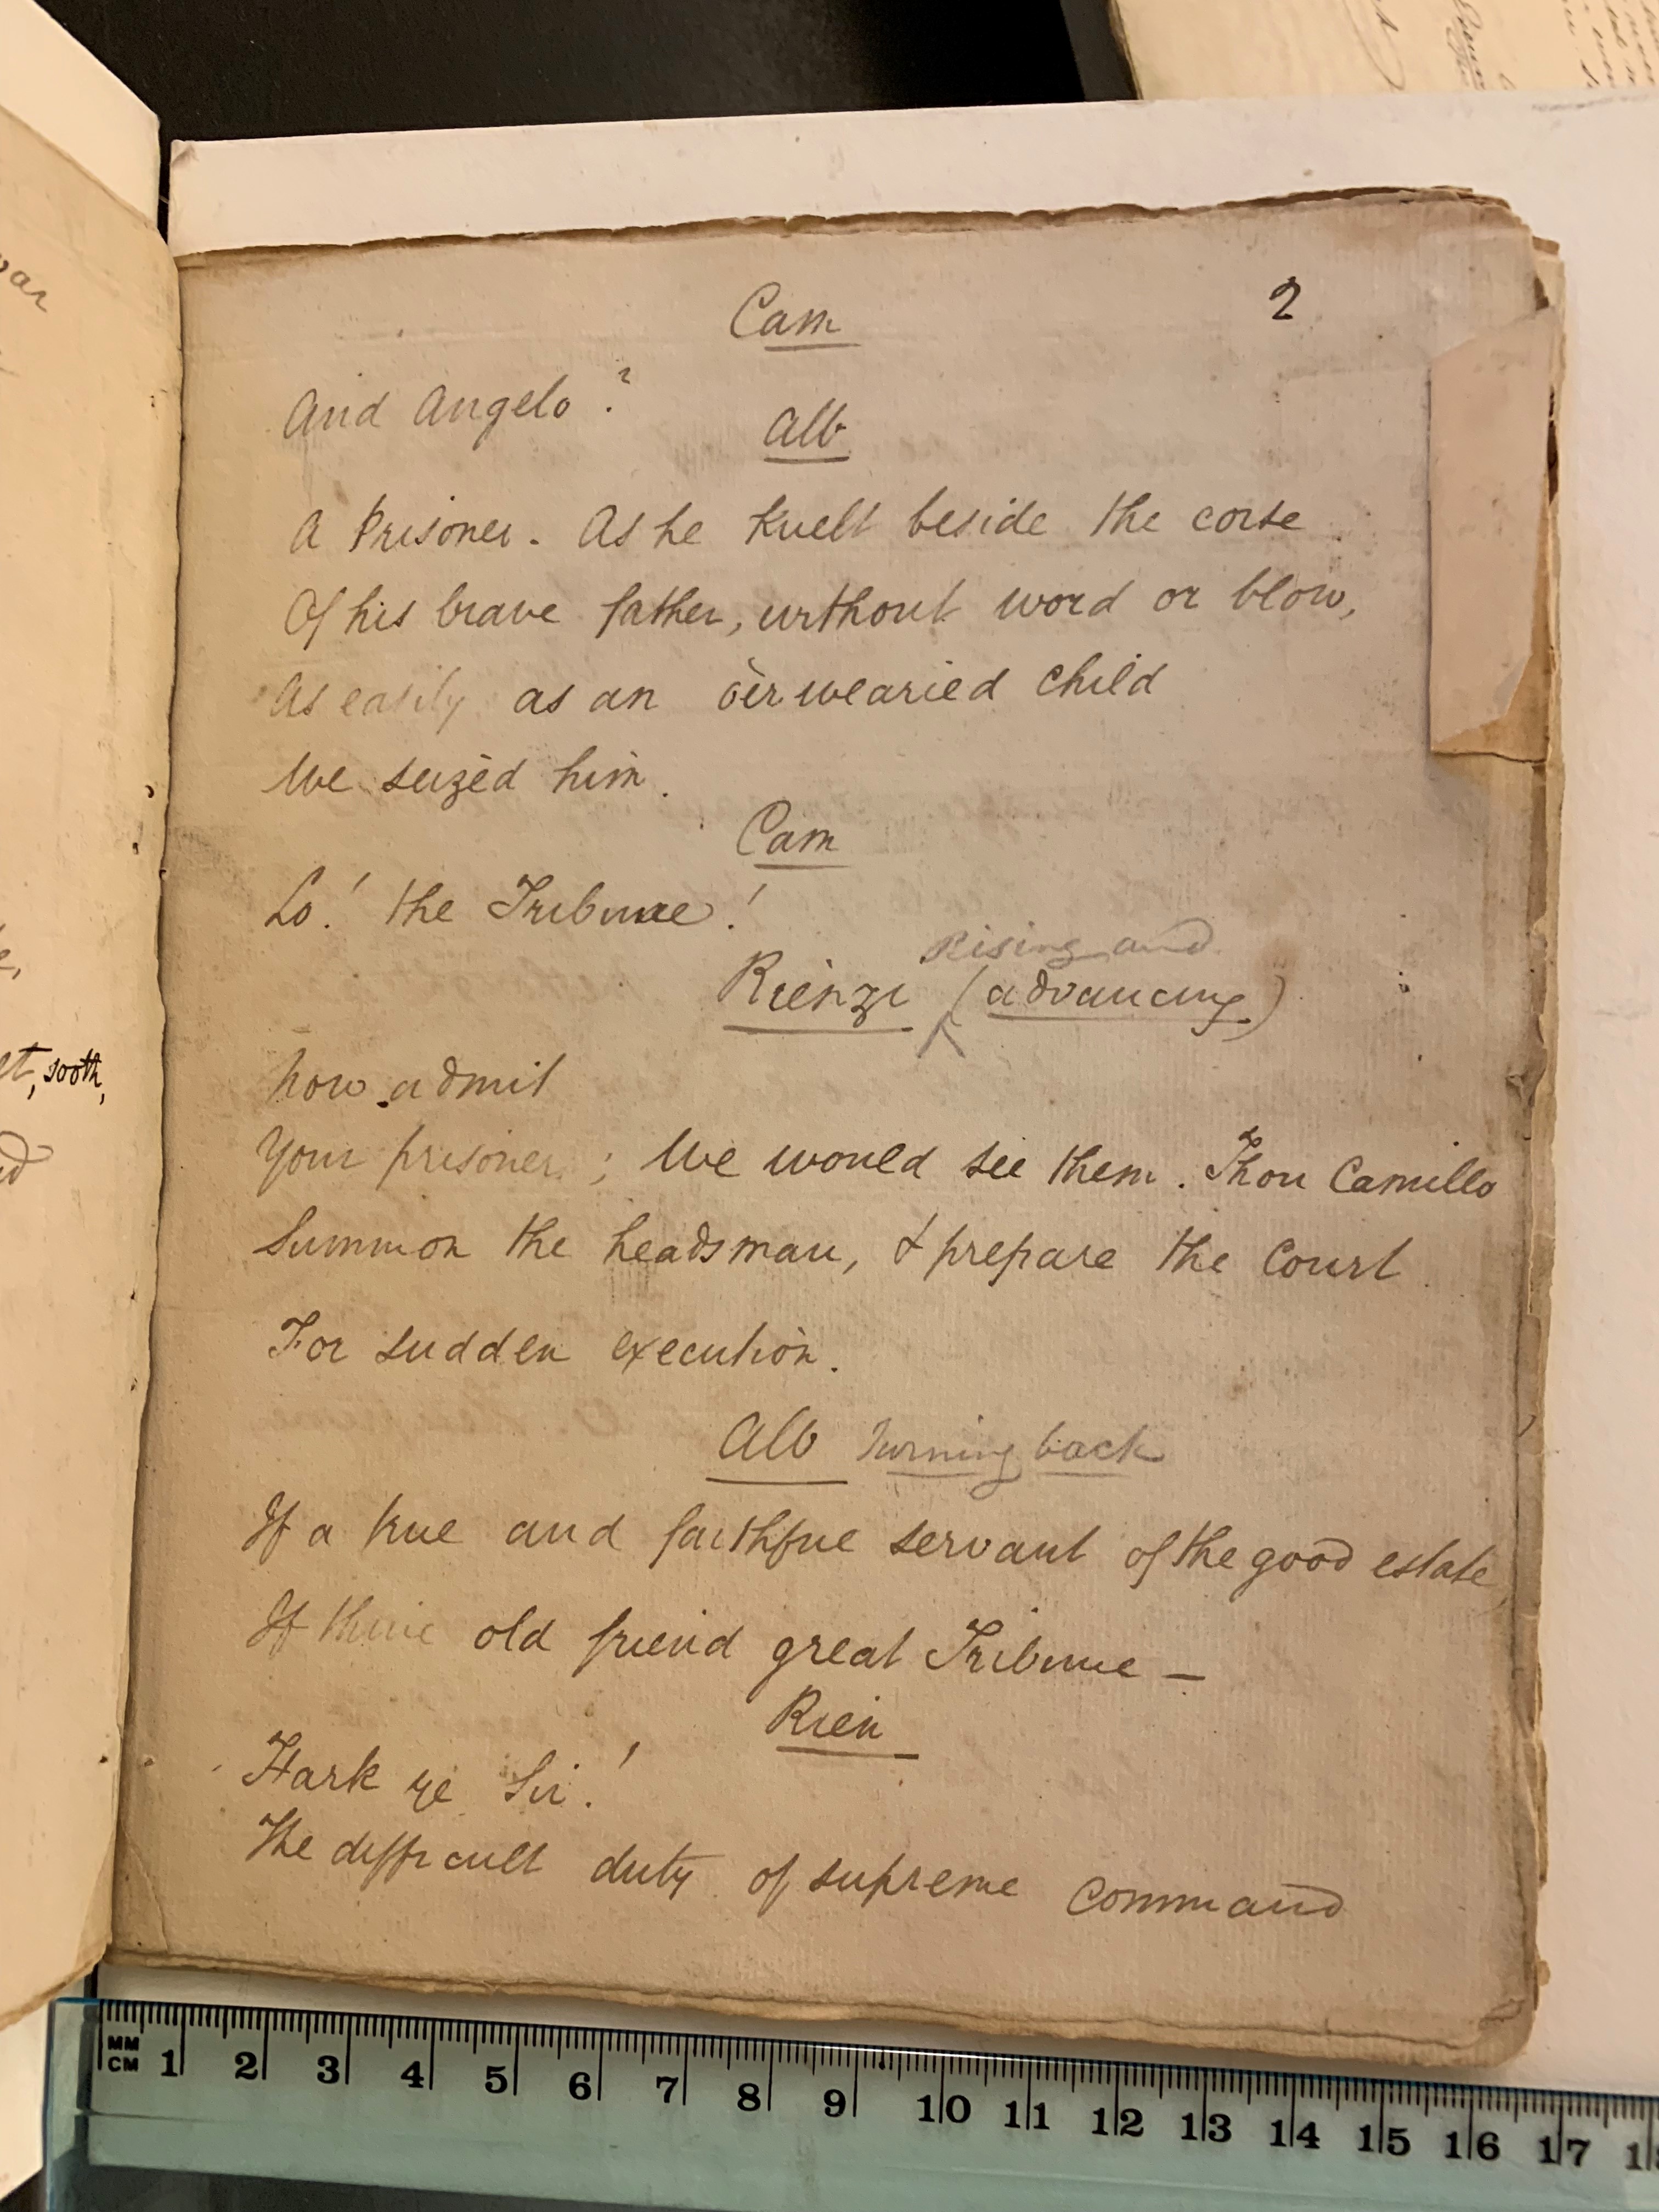 Cam
2
And Angelo?
Alb
A Prisoner. As he knelt beside the corse
Of his brave father, without word or blow,
As easily as an òerwearied child
We seized him.
Cam
Lo! the Tribune!
Rising and
Rienzi (advancing)
how admit
Your prisoner; We would see them. Thou Camillo
Summon the headsman, & prepare the Court
For sudden execution.
Alb turning back
If a true and faithful servant of the good estate
If thine old friend great Tribune —
Rien
Hark ye Sir!
The difficult duty of supreme command
sooth,
MM
CM 1 2 3 4 5 6 7 8 9 10 11 12 13 14 15 16 17